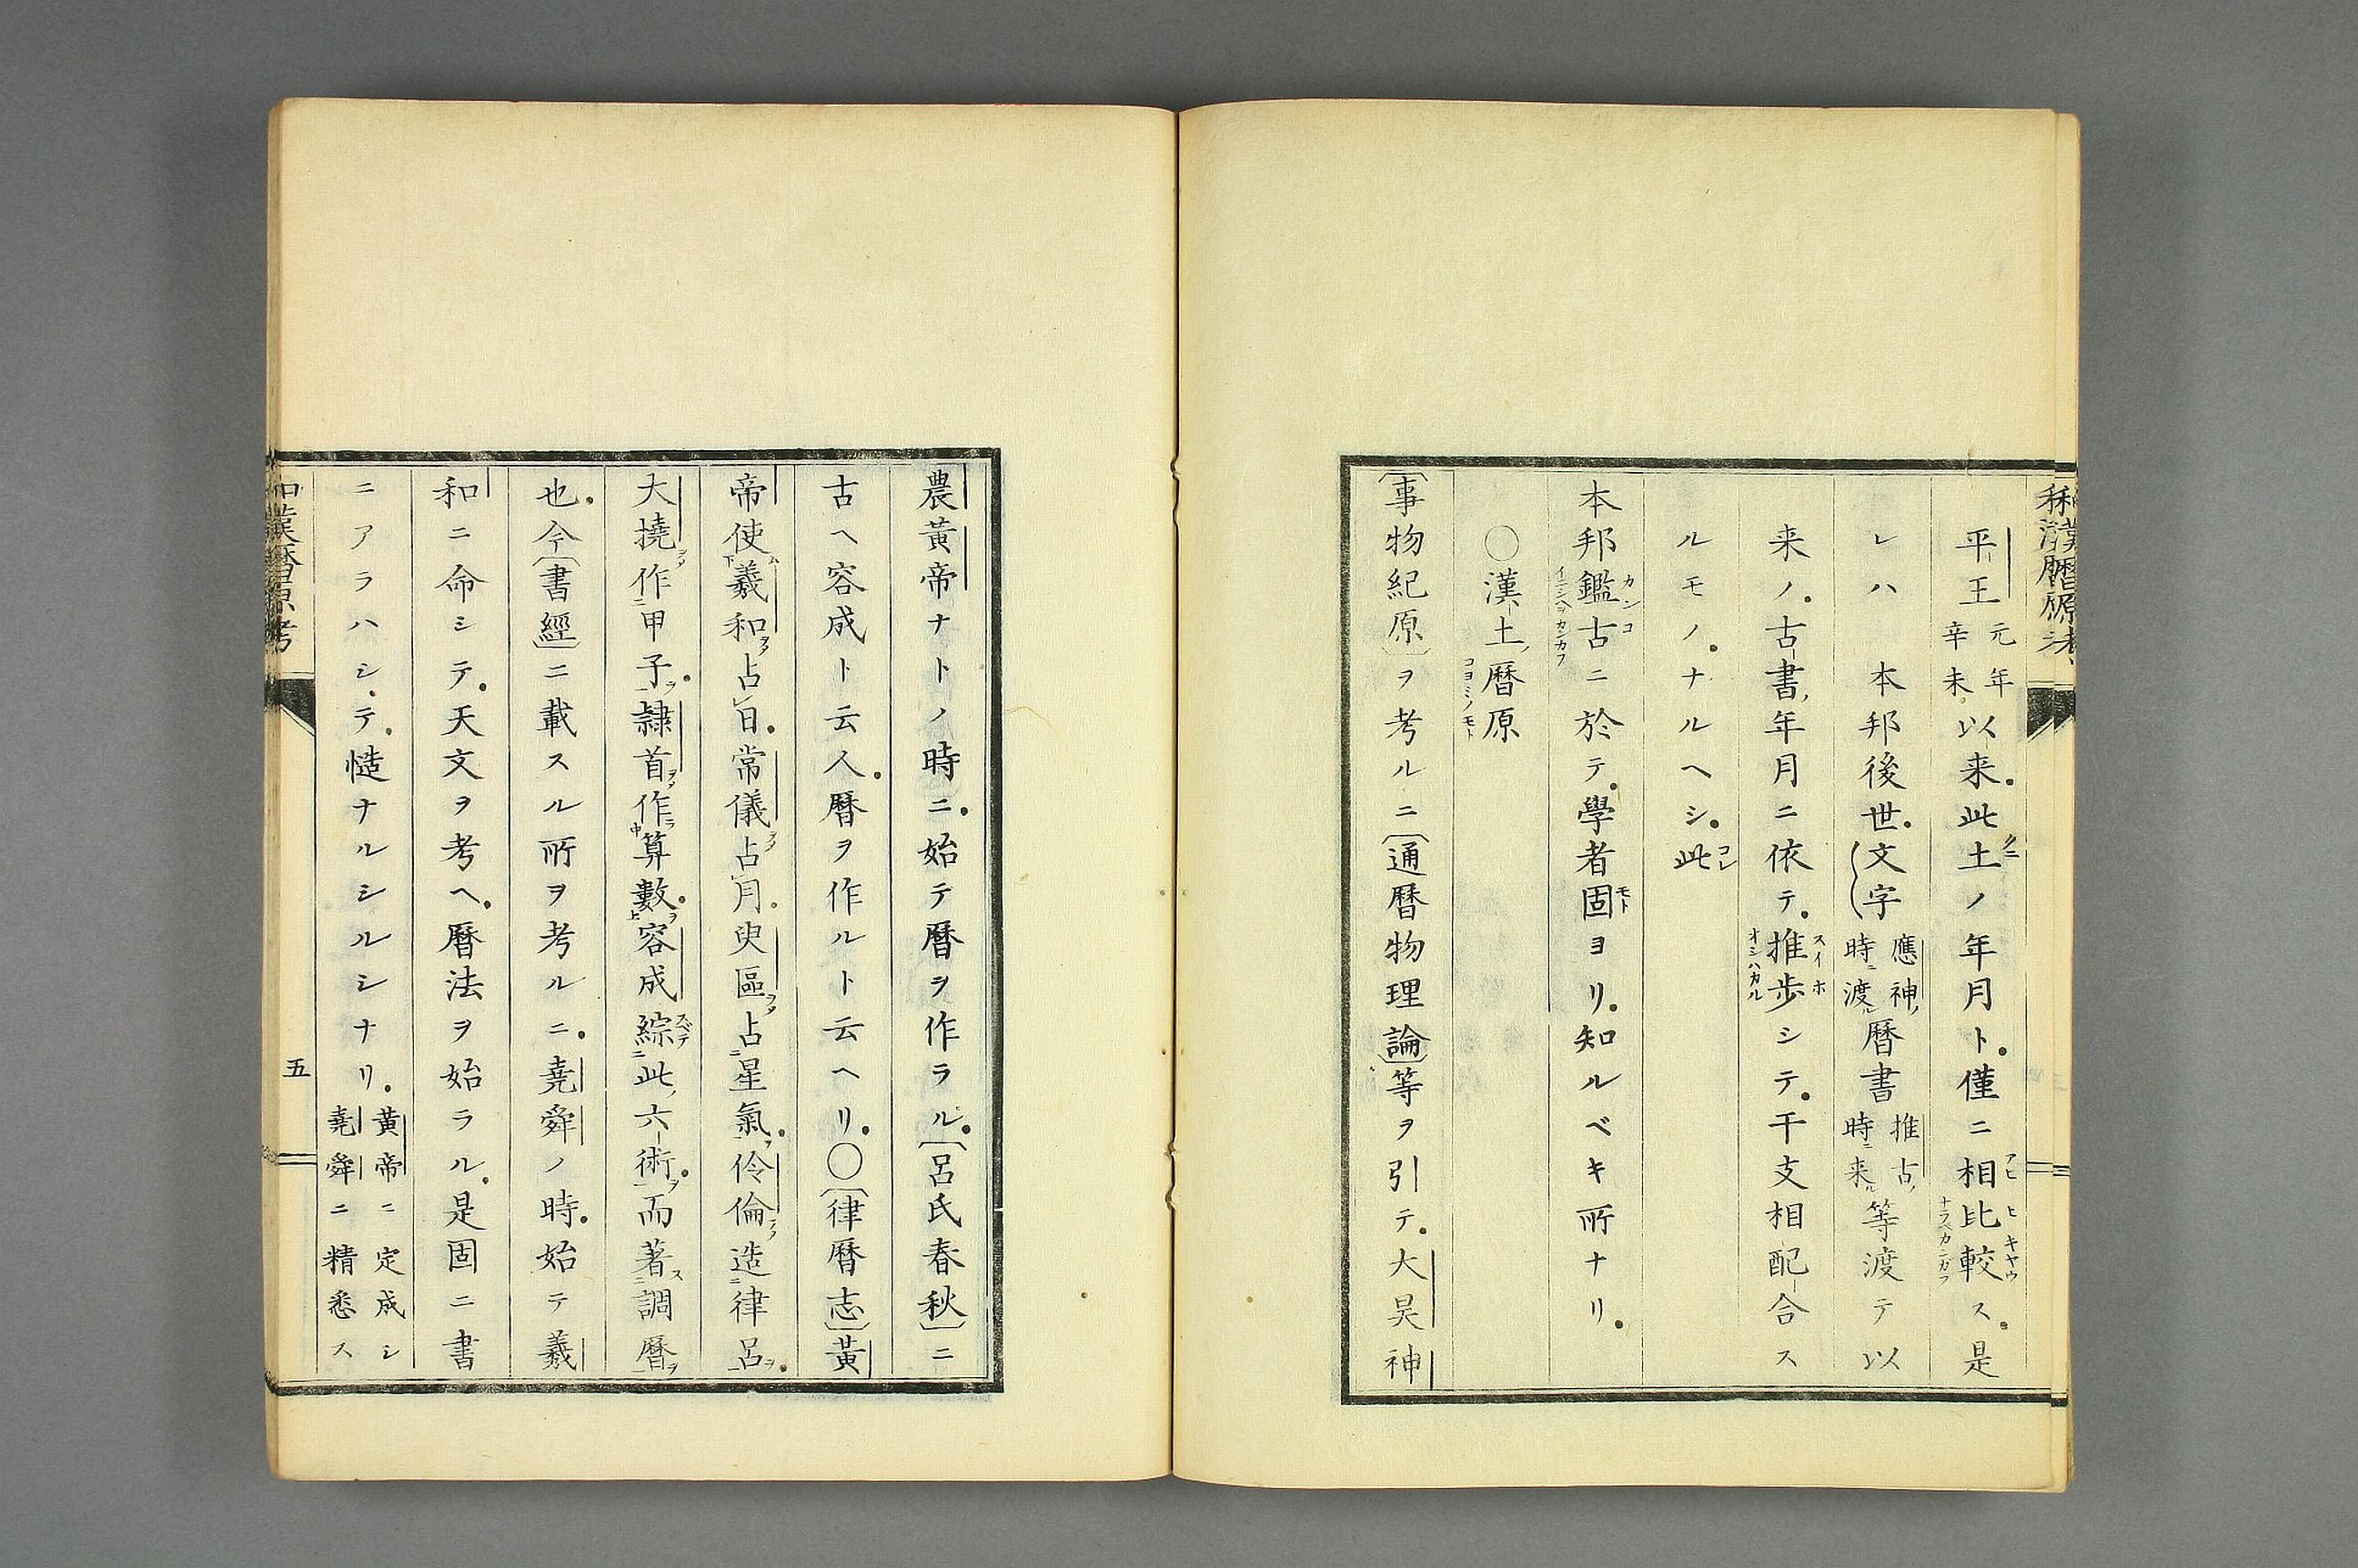 平王元年辛未以来此土ノ年月ト僅ニ相比較ス是
レハ 本邦後世文字應神ノ時ニ渡ル暦書推古ノ時ニ来ル等渡テ以
来ノ古書ノ年月ニ依テ推歩シテ干支相配合ス
ルモノナルヘシ此
本邦鑑古ニ於テ學者固ヨリ知ルベキ所ナリ
○漢土ノ暦原
事物紀原ヲ考ルニ通暦物理論等ヲ引テ大昊神
農黃帝ナトノ時ニ始テ暦ヲ作ラル呂氏春秋ニ
古ヘ容成ト云人暦ヲ作ルト云ヘリ○律暦志黃
帝使羲和占日常儀占月臾區占星氣伶倫造律呂
大撓作甲子隷首作算數容成綜此六術而著調暦
也今書經ニ載スル所ヲ考ルニ堯舜ノ時始テ羲
和ニ命シテ天文ヲ考ヘ暦法ヲ始ラル是固ニ書
ニアラハシテ慥ナルシルシナリ黃帝ニ定成シ堯舜ニ精悉ス
和漢暦原考
五